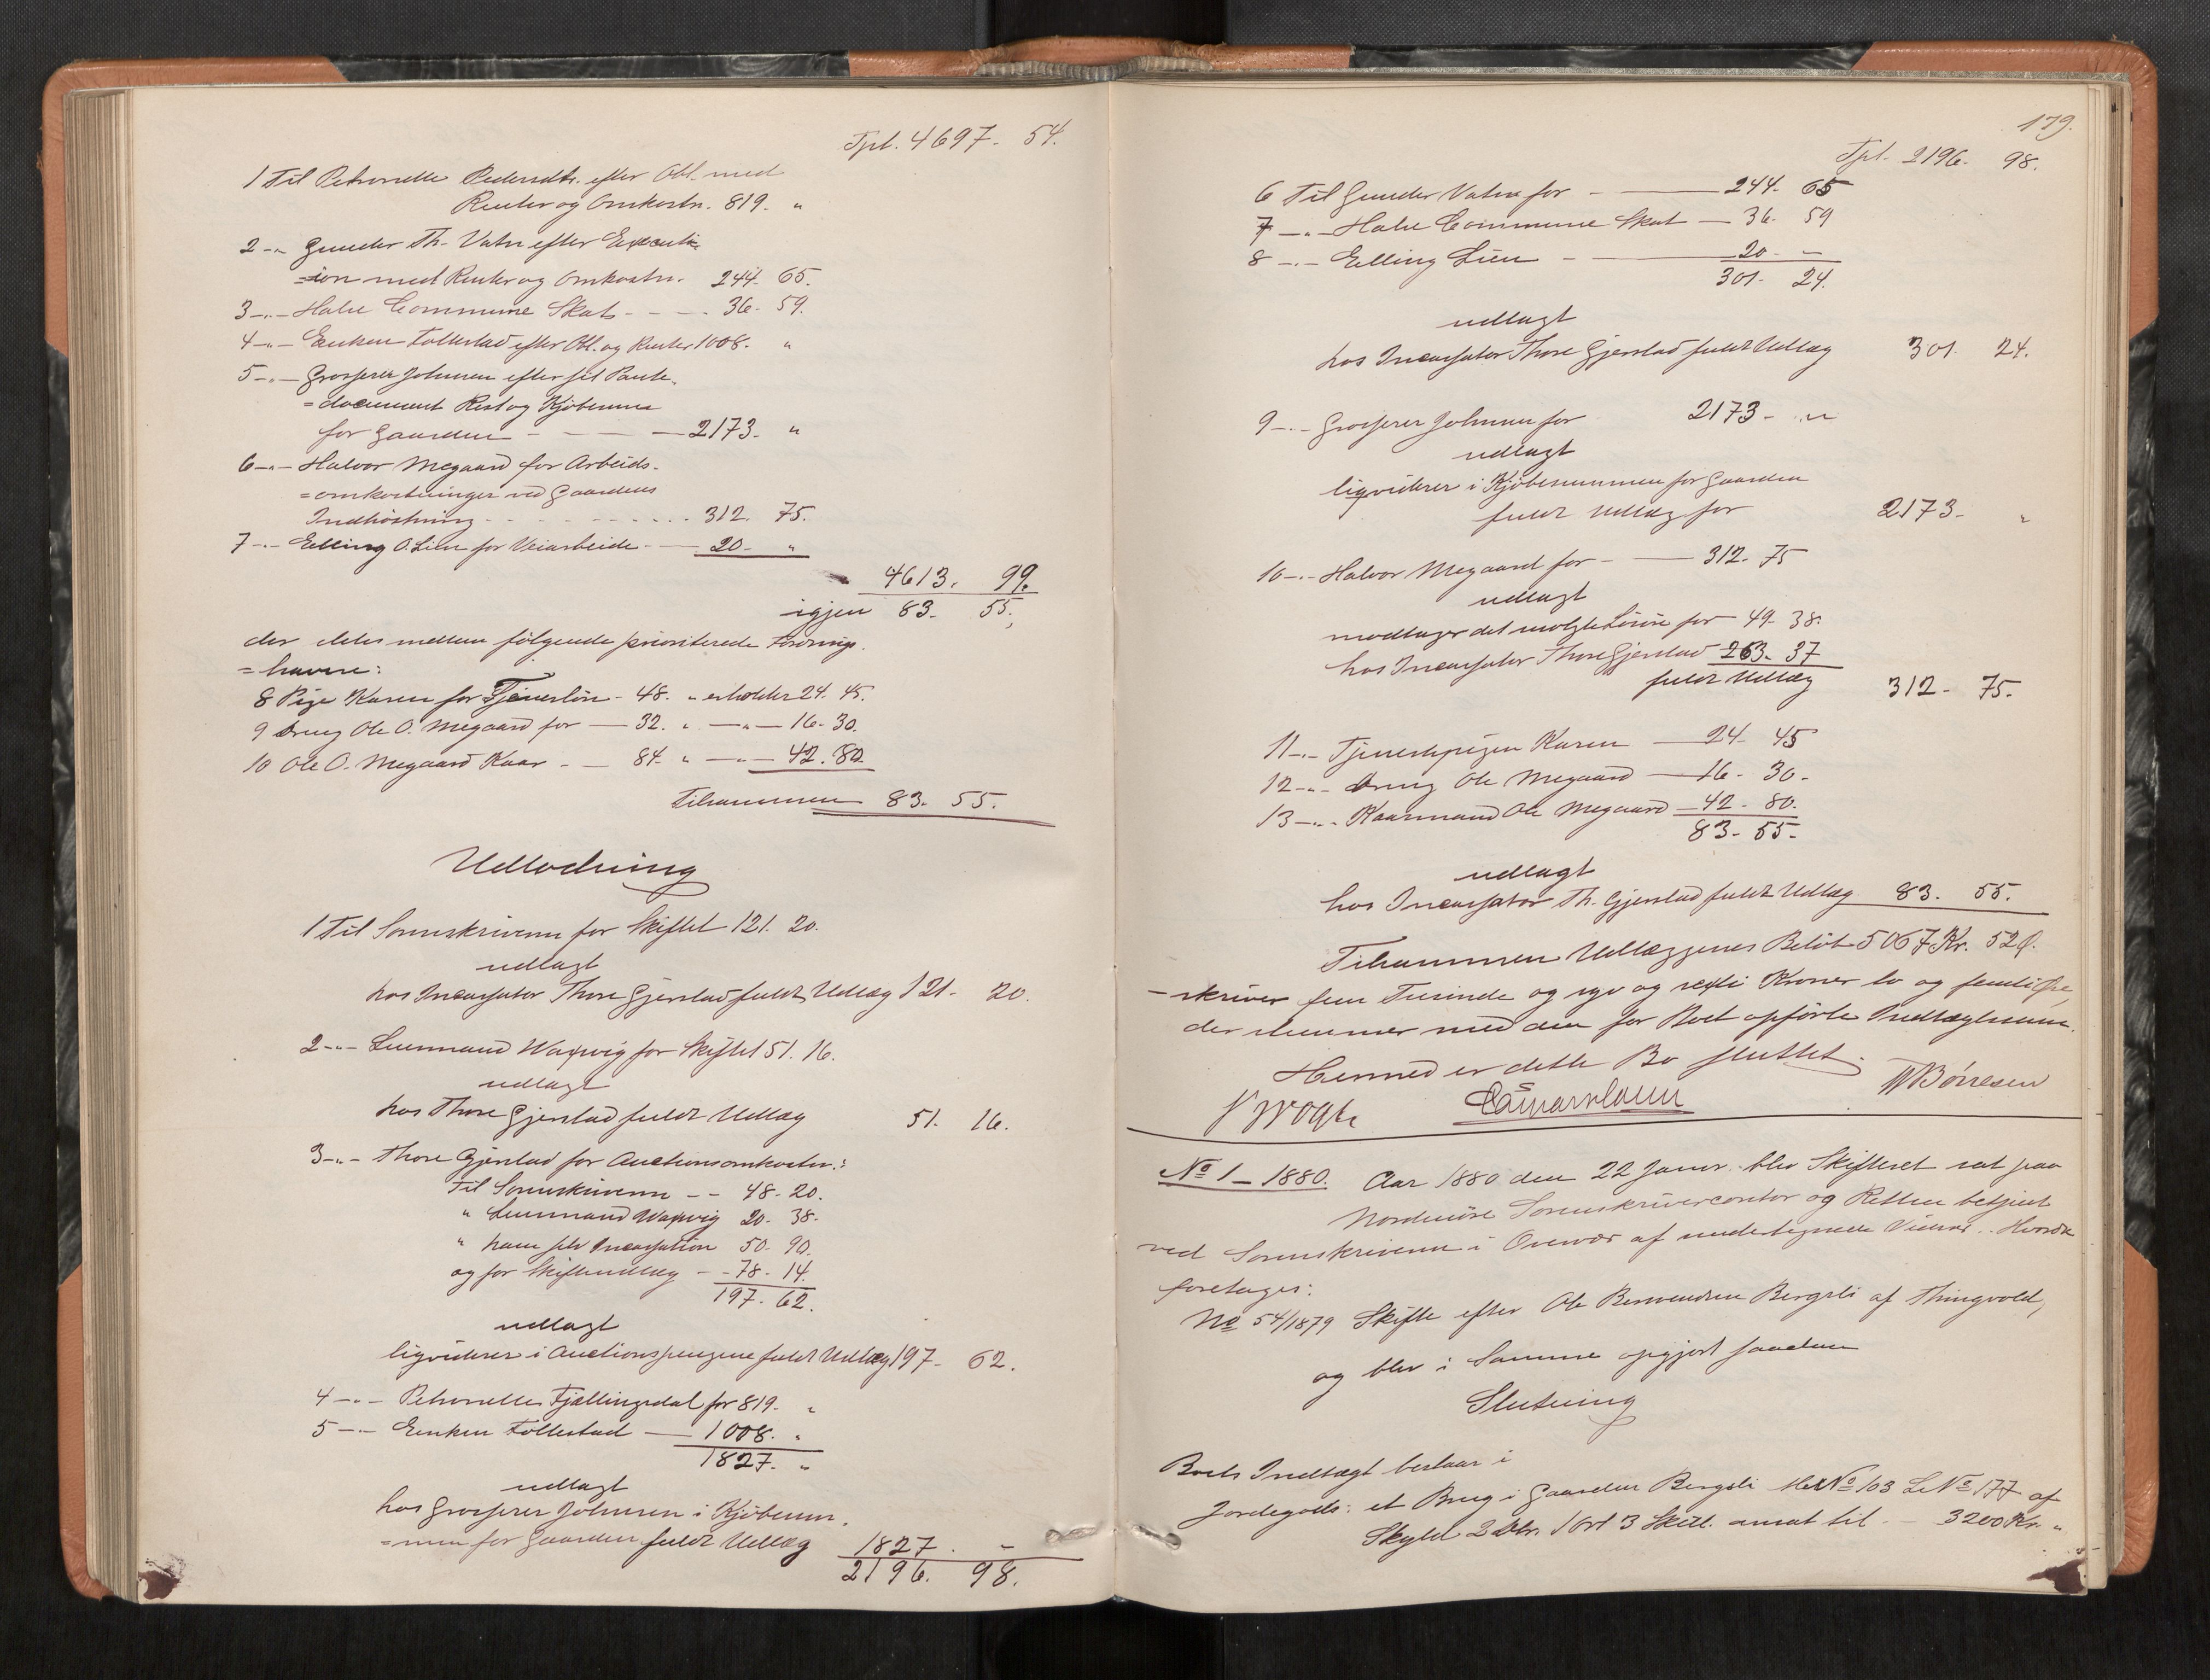 Tpt. 4697. 54.
1 Til Petronelle Pedersdtr. efter Obl. med
Renter og Omkostn. 819. "
2 -"- Gunder Th. Vatn efter Executi=
=ion med Renter og Omkostn. 244. 65.
3 -"- Halse Commune Skat - - - 36. 59.
4 -"- Enken Follestad efter Obl. og Renter 1008. "
5 -"- Grosserer Johnsen efter sit Pante=
=document Rest og Kjøbesum
for Gaarden - - - 2173. "
6 -"- Halvor Megaard for Arbeids-
=omkostninger ved Gaardens
Indhøstning - - - - - 312. 75.
7 -"- Elling O. Lien for Veiarbeide - 20. "
4613. 99.
igjen 83. 55.
der deles mellem følgende prioriterede Fordrings-
=havere:
8 Pige Karen for Tjenerløn - 48. " erholder 24. 45.
9 Dreng Ole O. Megaard for - 32. " -"- 16. 30.
10 Ole O. Megaard Kaar - - 84. " -"- 42. 80.
Tilsammen 83. 55.
Udlodning
1 Til Sorenskriveren for Skiftet 121. 20.
udlagt
hos Incassator Thore Gjerstad fuldt Udlæg 121. 20.
2 -"- Lensmand Waqvig for Skiftet 51. 16.
udlagt
hos Thore Gjerstad fuldt Udlæg 51. 16.
3 -"- Thore Gjerstad for Auctionsomkostn.:
Til Sorenskriveren - - 48. 20.
" Lensmand Waqvig 20. 38.
" ham selv Incassation 50. 90.
og for Skifteudlæg - - 78. 14.
197. 62.
udlagt
liqviderer i Auctionspengene fuldt Udlæg 197. 62.
4 -"- Petronelle Fjellingsdal for 819. "
5 -"- Enken Follestad - 1008. "
1827. "
udlagt
hos Grosserer Johnsen i Kjøbesum-
=men for Gaarden fuldt Udlæg 1827. -
2196. 98.
179.
Tpt. 2196. 98.
6 Til Gunder Vatn for - 244. 65
7 -"- Halse Commune Skat - 36. 59
8 -"- Elling Lien - 20. -
301. 24.
udlagt
hos Incassator Thore Gjerstad fuldt Udlæg 301. 24.
9 -"- Grosserer Johnsen for 2173 - "
udlagt
liqviderer i Kjøbesummen for Gaarden
fuldt Udlæg for 2173 - "
10 -"- Halvor Megaard for - 312. 75
udlagt
modtager det usolgte Løsøre for 49. 38.
hos Incassator Thore Gjerstad 263. 37
fuldt Udlæg 312. 75.
11 -"- Tjenestepigen Karen - 24. 45
12 -"- Dreng Ole Megaard - 16. 30.
13 -"- Kaarmand Ole Megaard - 42. 80.
83. 55.
udlagt
hos Incassator Th. Gjerstad fuldt Udlæg 83. 55.
Tilsammen Udlæggenes Beløb 5067 Kr. 52 Ø.
- skriver fem Tusinde og syv og sexti Kroner to og femti Øre,
der stemmer med den for Boet opførte Indtægtssum.
Hermed er dette Bo sluttet.
Vogt
W Børresen
No 1 - 1880. Aar 1880 den 22 Januar blev Skifteret sat paa
Nordmøre Sorenskrivercontor og Retten betjent
ved Sorenskriveren i Overvær af undertegnede Vidner. Hvorda
foretages:
No 54/1879 Skifte efter Ole Bersvendsen Bergsli af Thingvold,
og blev i Samme opgjort saadan
Slutning
Boets Indtægt bestaar i
Jordegods: et Brug i Gaarden Bergsli Mat No 103 L No 177 af
Skyld 2 Dlr. 1 Ort 3 Skill. ansat til - 3200 Kr. "